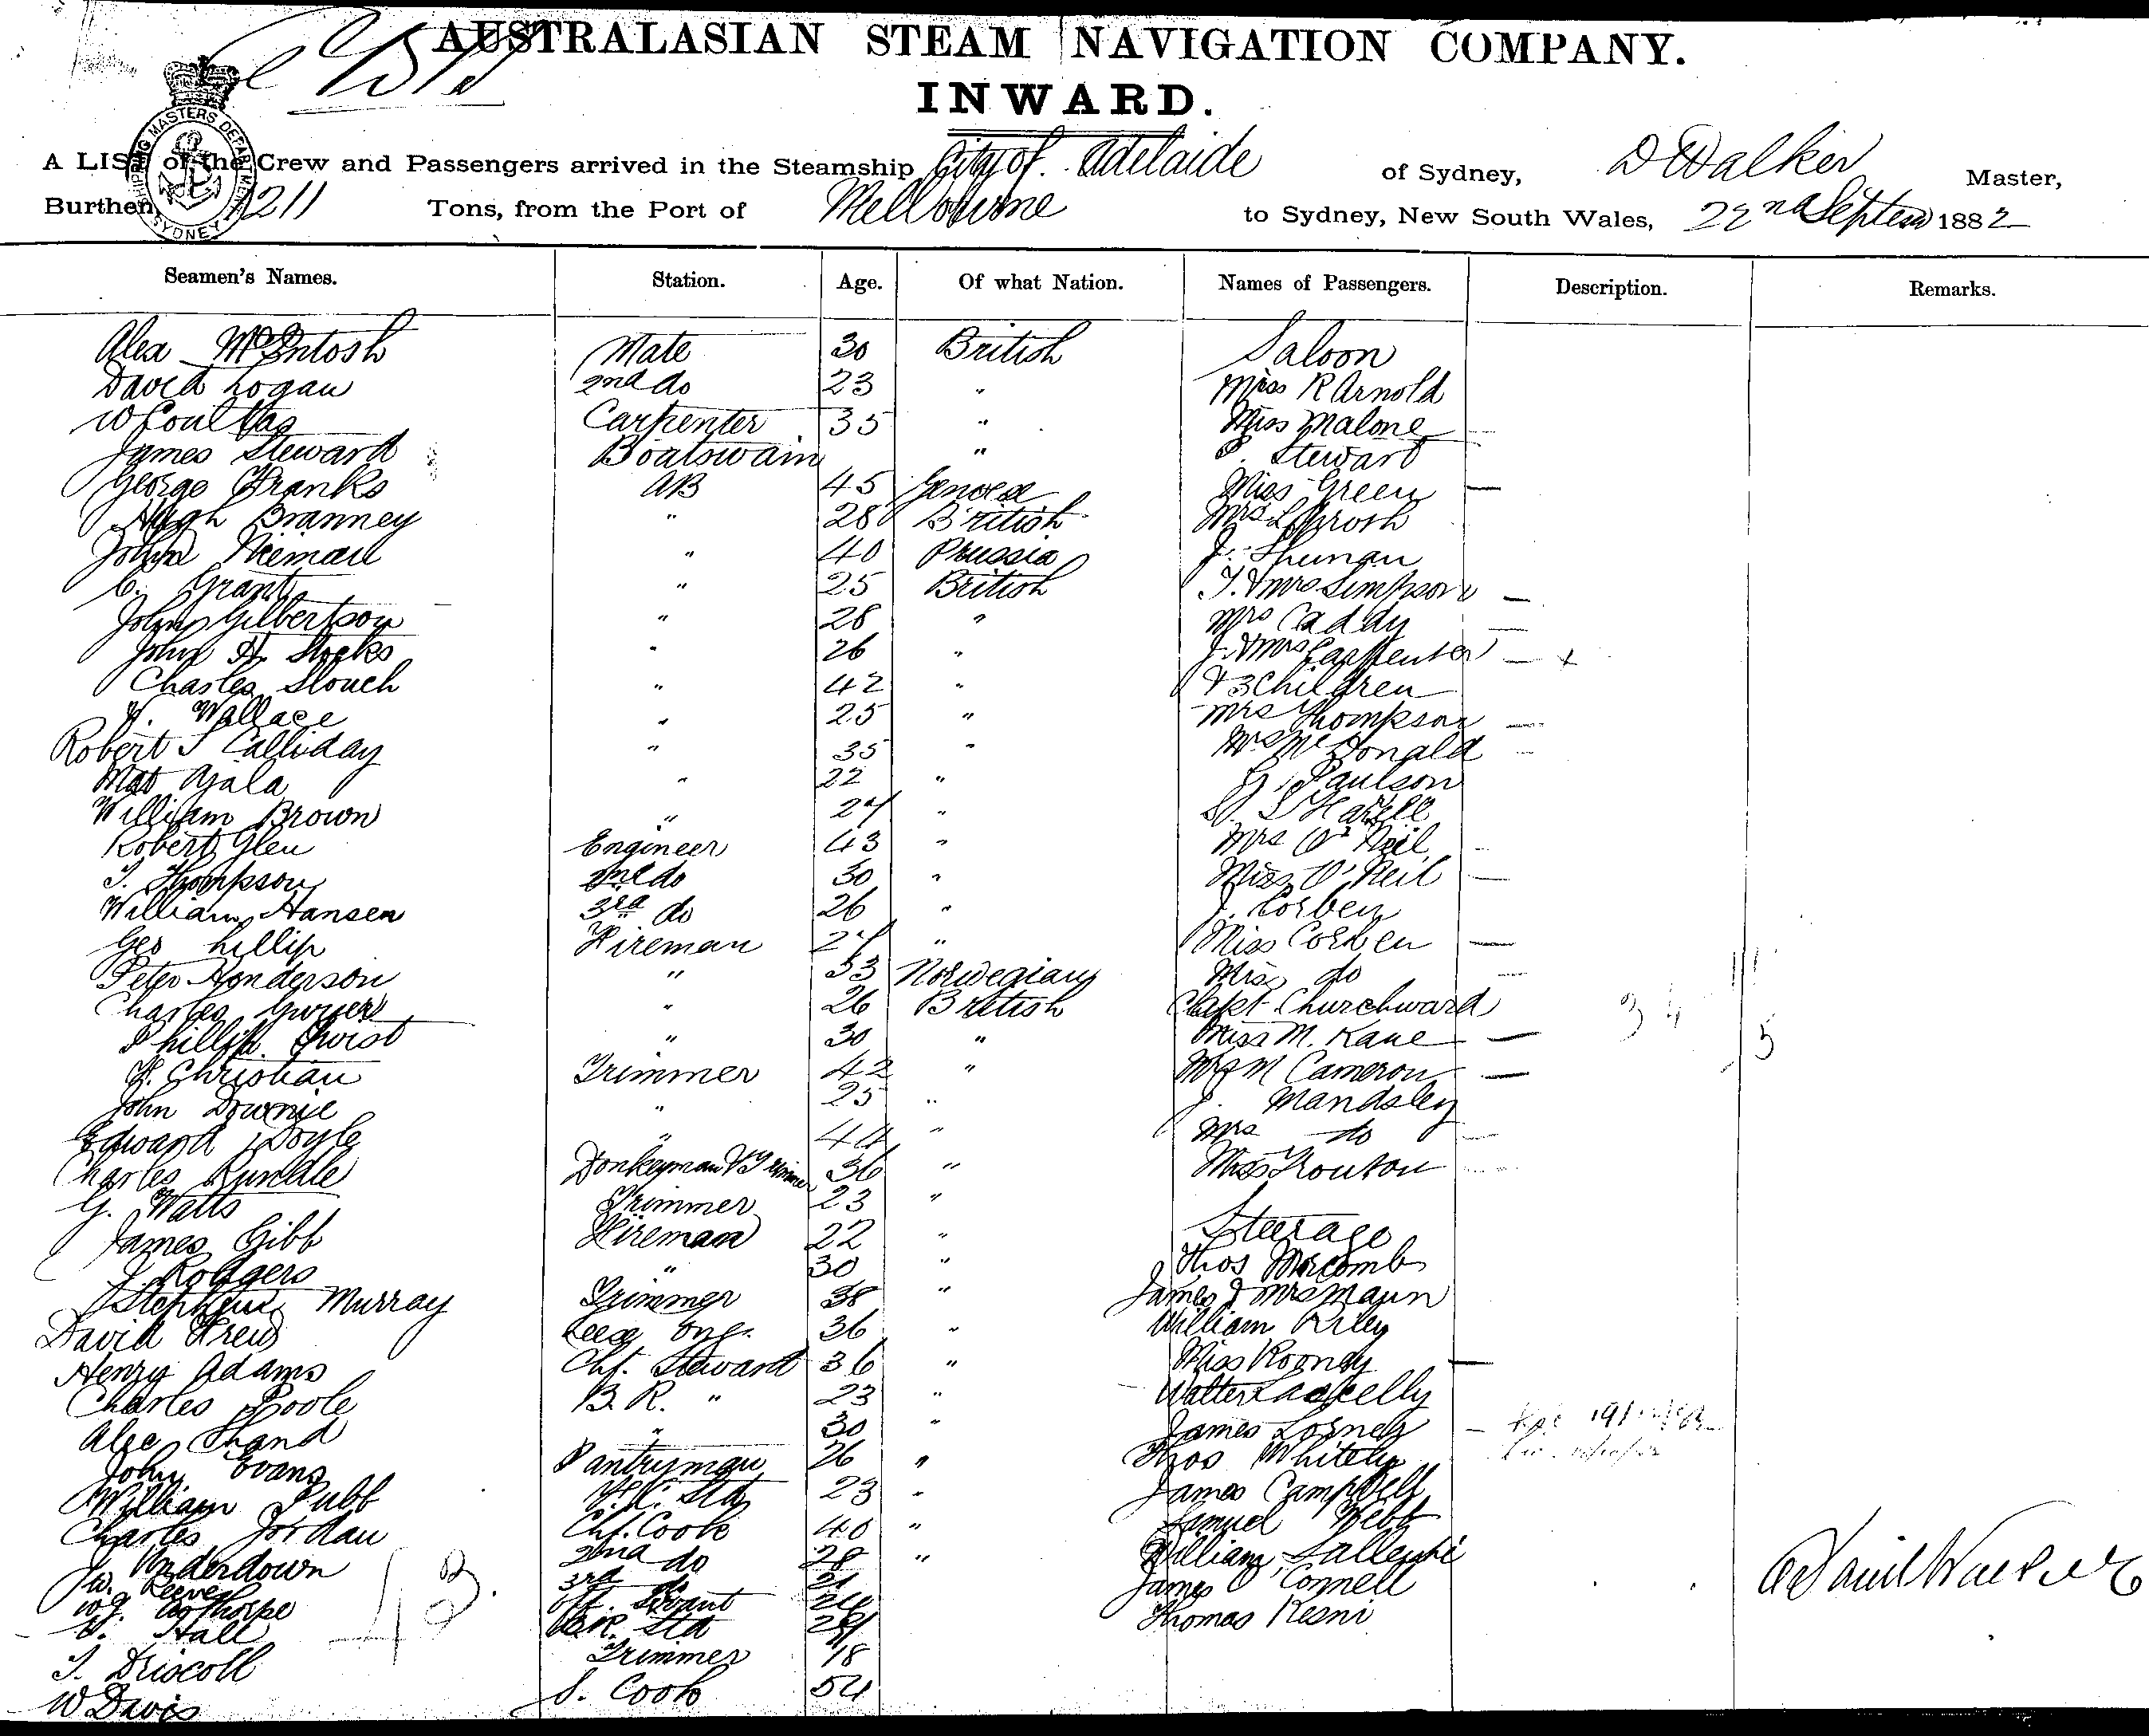 AUSTRALASIAN STEAM NAVIGATION COMPANY.
INWARD.
SHIPPING MASTERS DEPARTMENT SYDNEY
A LIST of the Crew and Passengers arrived in the Steamship City of Adelaide of Sydney, D Walker Master,
Burthen 1211 Tons, from the Port of Melbourne to Sydney, New South Wales, 22nd Septem 1882
Seamen's Names. Station. Age. Of what Nation. Names of Passengers. Description. Remarks.
Alex McIntosh Mate 30 British Saloon
David Logan 2nd do 23 " Miss R Arnold
W Coulttas Carpenter 35 " Miss Malone
James Steward Boatswain " Stewart
George Franks AB 45 Genoa Miss Green
Hugh Branney " 28 British Mrs
John Nieman " 40 Prussia J. Shuman
C. Grant " 25 British T. & Mrs Simpson
John Gilbertson " 28 " Mrs Caddy
John H Stocks " 26 " J. & Mrs Carpenter
Charles Slouch " 42 " & 3 Children
W. Wallace " 25 " Mrs Thompson
Robert S Calliday " 35 " Mrs McDonald
Mat Gala " 22 " Paulson
William Brown " 27 "
Robert Glen Engineer 43 " Mrs O'Neil
T. Thompson 2nd do 30 " Miss O'Neil
William Hansen 3rd do 26 " J. Corben
Geo Lillip Fireman 27 " Miss Corben
Peter Henderson " 33 Norwegian Mrs do
Charles Gwyer " 26 British Capt Churchward
Phillip Twist " 30 " Miss M. Kane
H. Christian Trimmer 42 " Mrs M Cameron
John Downie " 25 " J. Mandsley
Edward Doyle " 44 " Mrs do
Charles Rundle Donkeyman & Trimmer 36 " Miss Trouton
G. Watts Trimmer 23 "
James Gibb Fireman 22 " Steerage
J. Rodgers " 30 " Thos
Stephen Murray Trimmer 38 " James & Mrs Mann
David Frew Eng. 36 " William Riley
Henry Adams Chf. Steward 36 " Miss Rooney
Charles Poole B. R. " 23 " Walter
Alec Shand " 30 " James
John Evans Pantryman 26 " Thos Whitely
William Tubb Std 23 " James Campbell
Charles Jordan Chf. Cook 40 " Samuel Webb
J. Underdown 2nd do 28 " William
W. Reeves 3rd do 21 James O Connell
W.J. 24 Thomas Resni
Hall Std
J. Driscoll Trimmer 18
W Davis S. Cook 54